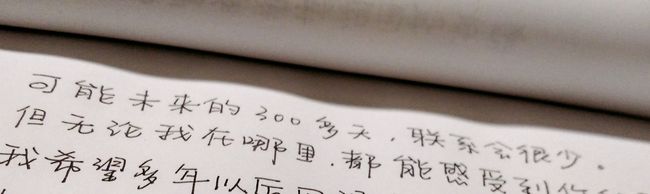 可能未来的300多天,联系会很少。
但无论我在哪里,都能感受到
我希望多年以后